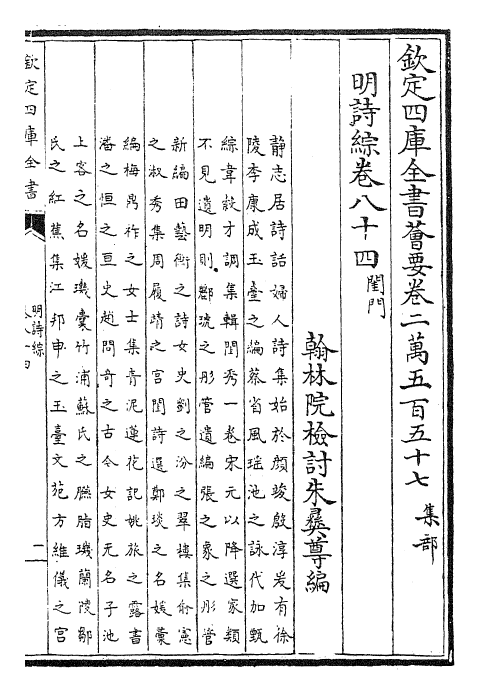 欽定四庫全書薈要卷二萬五百五十七 集部
明詩綜卷八十四 閨門
翰林院檢討朱彛尊編
静志居詩話婦人詩集始於顔竣殷淳爰有徐
陵李康成玉臺之編蔡省風瑶池之詠代加甄
綜韋縠才調集輯閨秀一卷宋元以降選家類
不見遺明則酈琥之彤管遺編張之象之彤管
新編田藝衡之詩女史劉之汾之翠樓集俞憲
之淑秀集周履靖之宫閨詩選鄭琰之名媛彙
編梅鼎祚之女士集青泥蓮花記姚旅之露書
潘之恒之亘史趙問奇之古今女史无名子池
上客之名媛璣囊竹浦蘇氏之臙脂璣蘭陵鄒
氏之紅蕉集江邦申之玉臺文苑方維儀之宫
欽定四庫全書
明詩綜
卷八十四
一